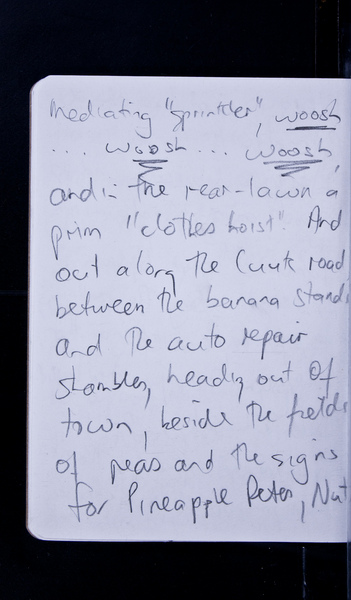 Mediating "sprinkler", woosh
... woosh ... woosh,
and in the rear-lawn a
prim "clothes hoist". And
out along the road
between the banana stands
and the auto repair
shambles, heading out of
town, beside the fields
of peas and the signs
for Pineapple Peter, Nut